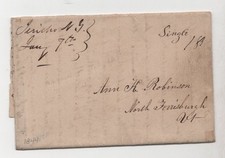 Jericho
Jany 7th
Single
Ann H. Robinson
North Ferrisburgh
Vt